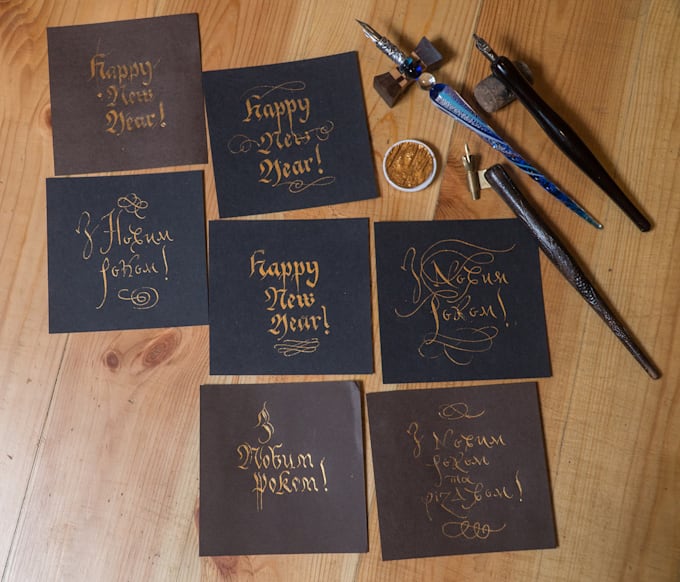 Happy
New
Year!
Happy
New
Year!
З Новим
роком!
Happy
New
Year!
З Новим
роком!
З
Новим
роком!
З Новим
роком
та
різдвом!